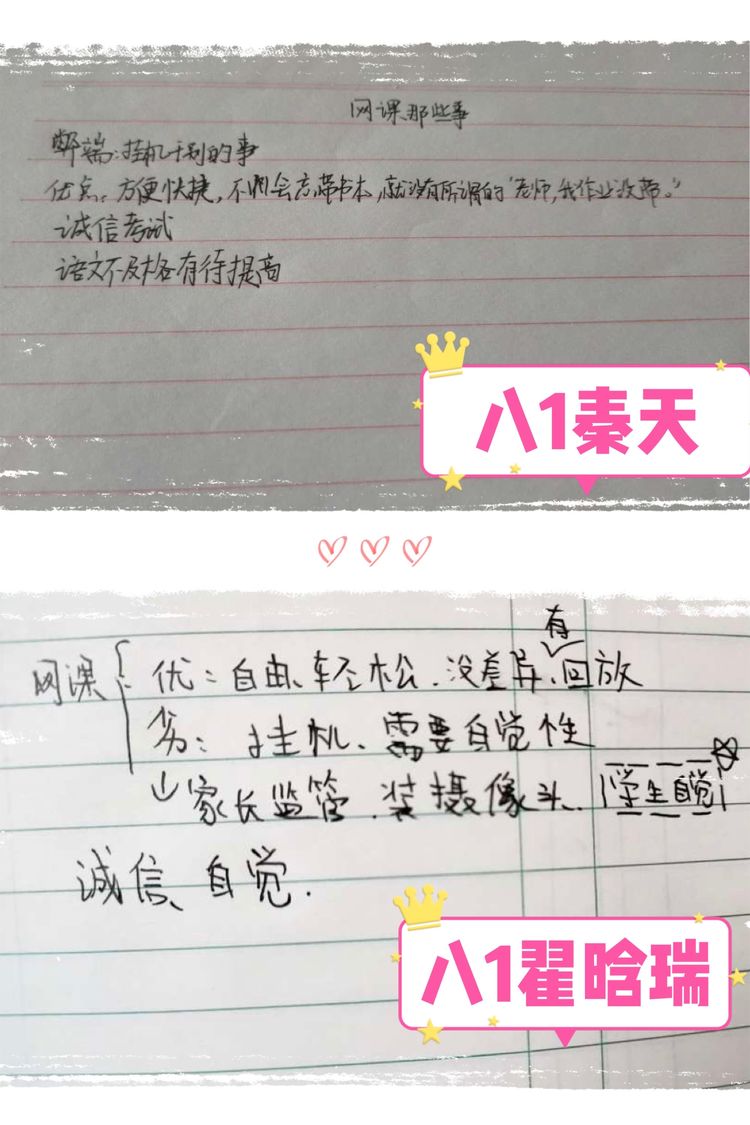 网课那些事
弊端:挂机干别的事
优点:方便快捷,不用会忘带书本,就没有所谓的“老师,我作业没带。”
诚信考试
语文不及格有待提高
八1秦天
网课 优:自由、轻松、没差异、有回放
劣:挂机、需要自觉性
↓家长监管、装摄像头、学生自觉
诚信、自觉.
八1翟晗瑞